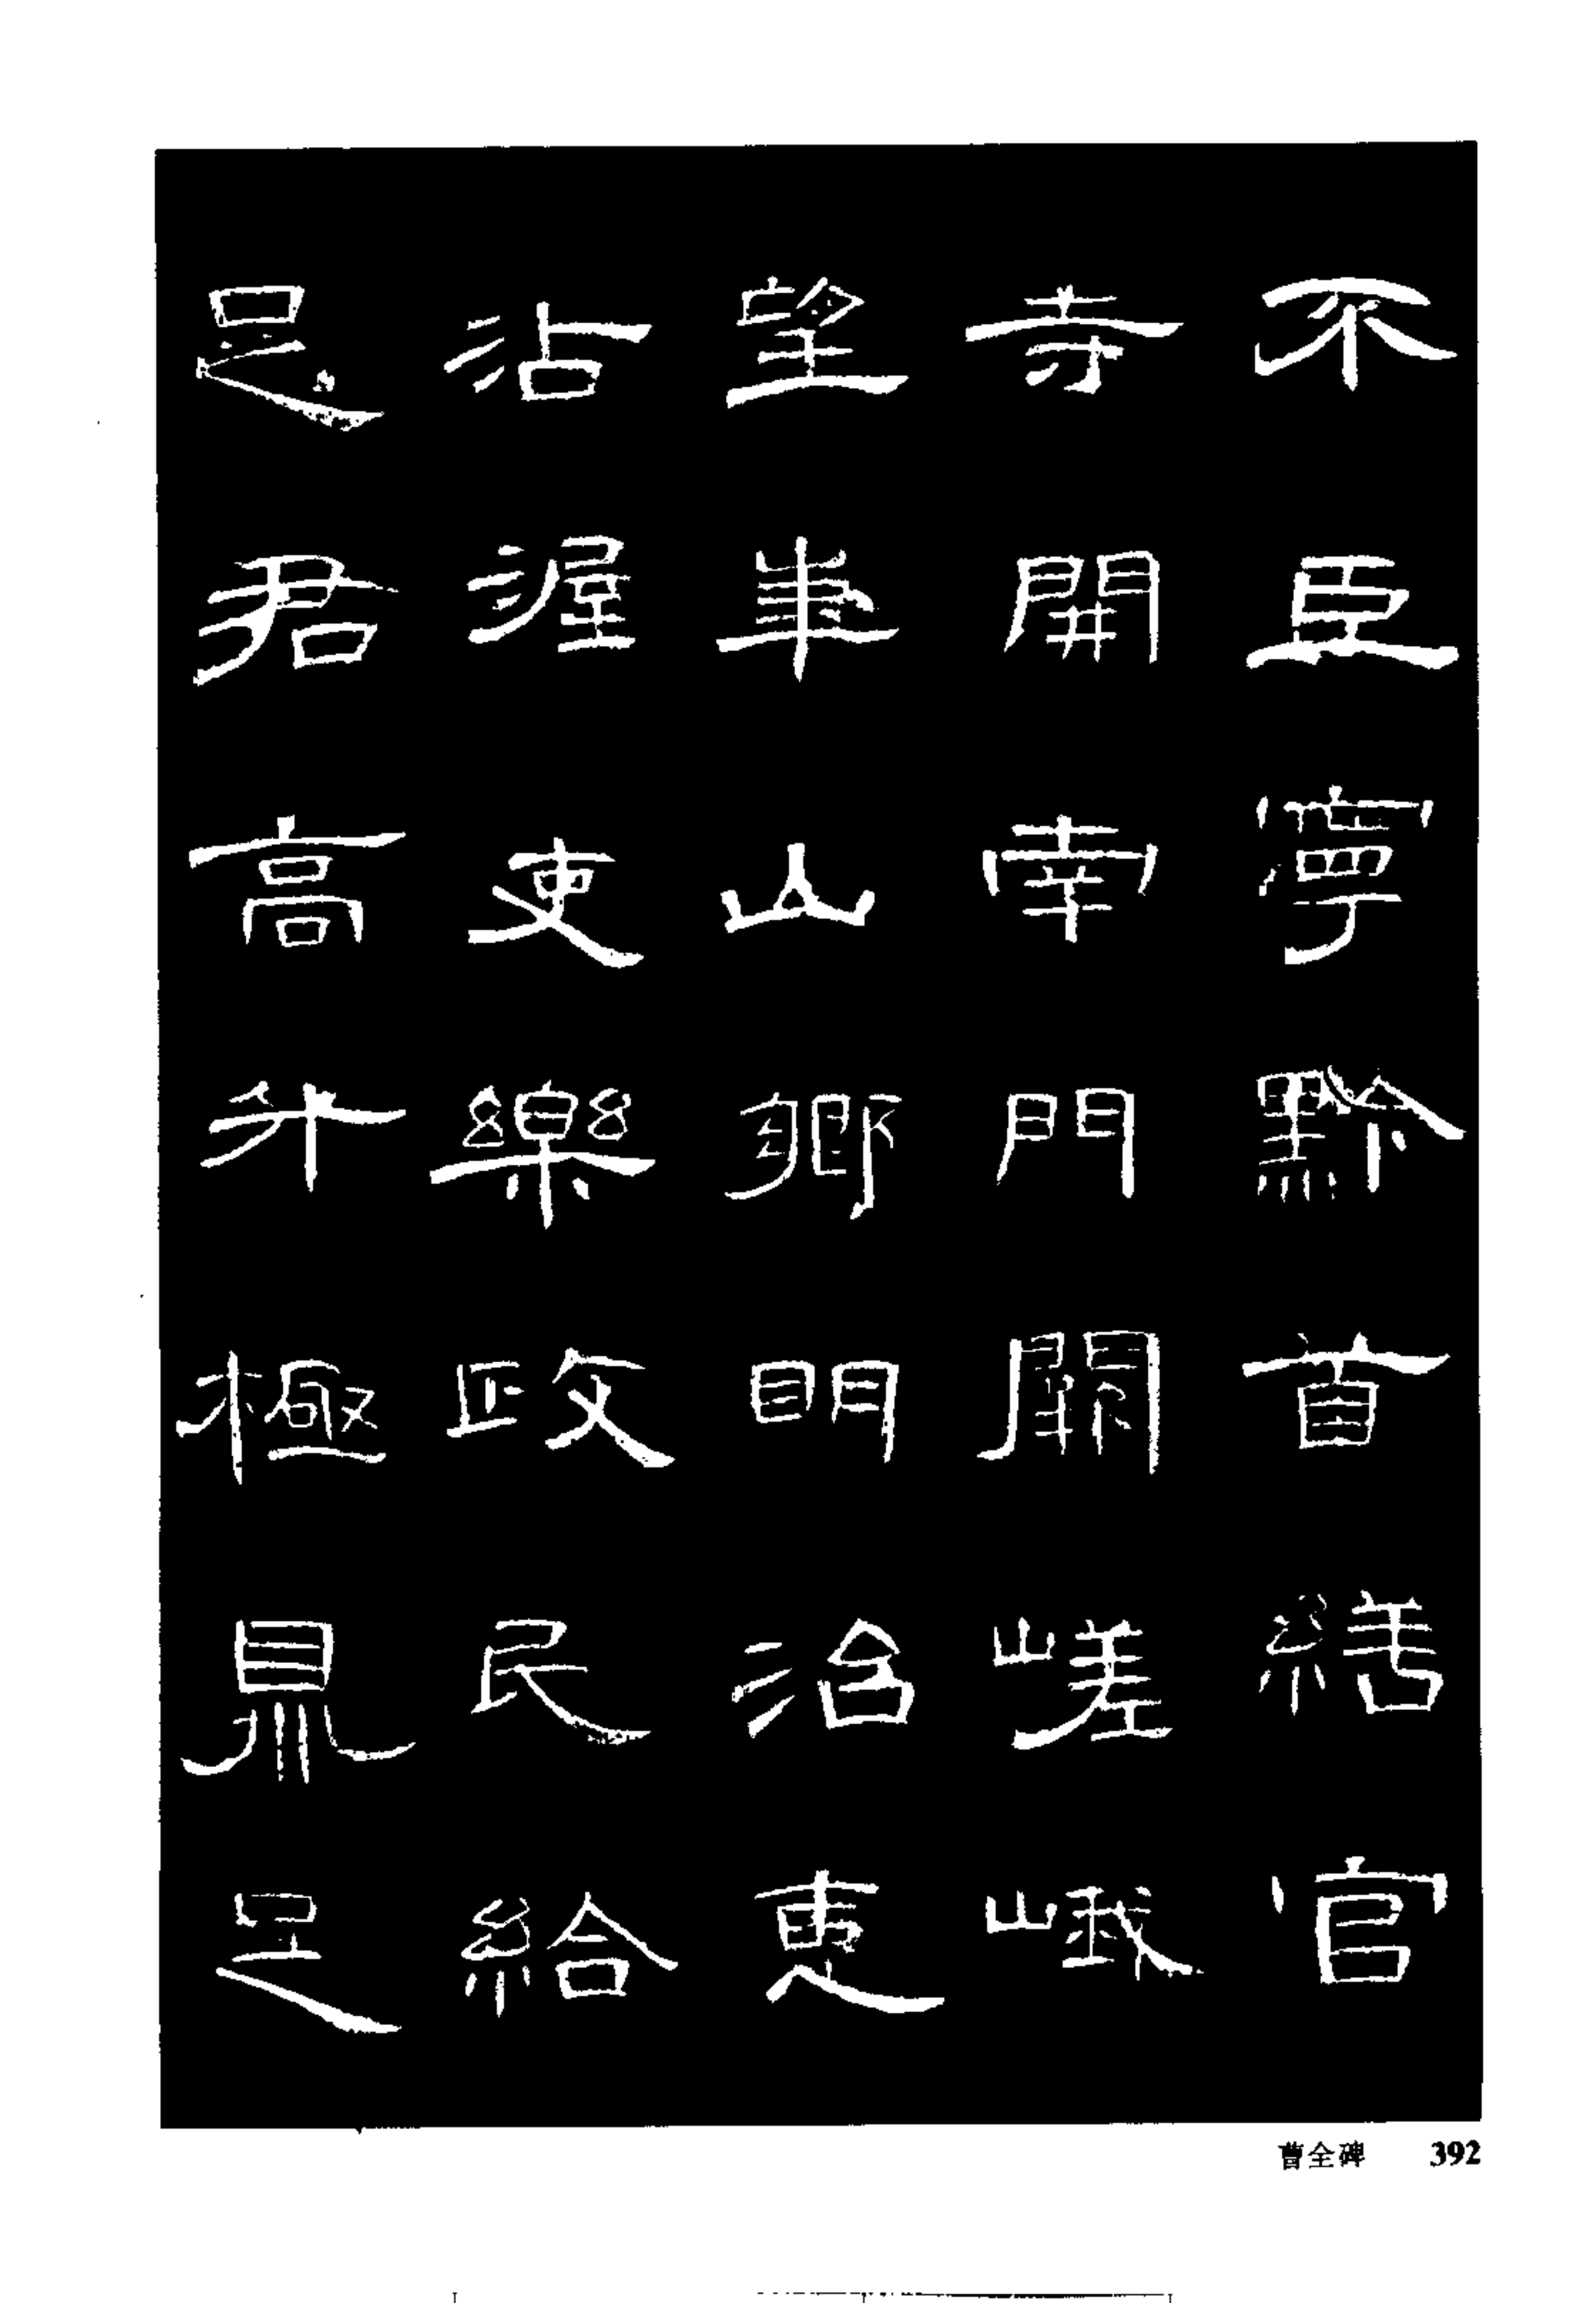 不臣寧黔首繕官
寺開南門闕嵯峨
望華山鄉明治惠
沾渥吏樂政民給
足君高升極鼎足
曹全碑 392